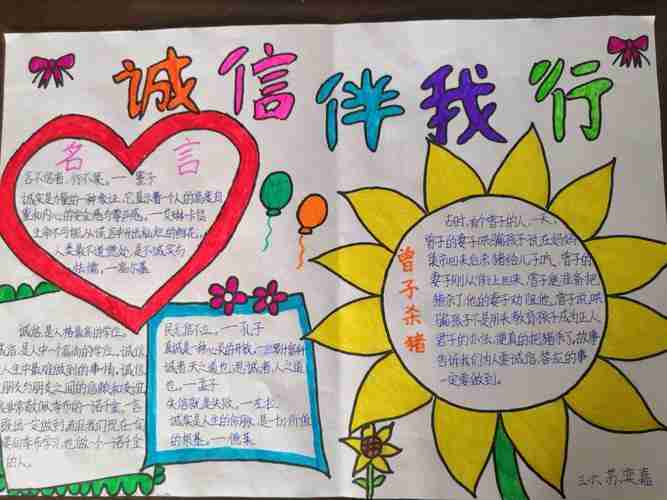 诚信伴我行
名言
言不信者,行不果。——墨子
诚实是力量的一种象征,它显示着一个人的高度自
重和内心的安全感与尊严感。——艾琳卡瑟
生命不可能从谎言中开出灿烂的鲜花。
人类最不道德处,是不诚实与
怯懦,——高尔基
诚信,是人格最高的学位。
诚信,是人中一个高尚的学位,诚信
人生中最难做到的事情,诚信
朋友与朋友之间的信赖和友谊
季布的一诺千金,言
既出一定做到,而我们现在
要向季布学习,也做一个一诺千金
的人。
民无信不立。——孔子
真诚是一种心灵的开放。
诚者,天之道也,思诚者,人之道
也,——孟子
失信就是失败,——左拉
诚实是人生的命脉,是一切价值
的根基。——德莱
曾子杀猪
古时,有个曾子的人,一天,
曾子的妻子哄骗孩子说,在
集市回来后杀猪给儿子吃,曾子的
妻子刚从街上回来,曾子便准备把
猪杀了,他的妻子劝阻他,曾子说,哄
骗孩子不是用来教育孩子成为正人
君子的办法,便真的把猪杀了,故事
告诉我们为人要诚信,答应的事
一定要做到。
三六 苏奕嘉